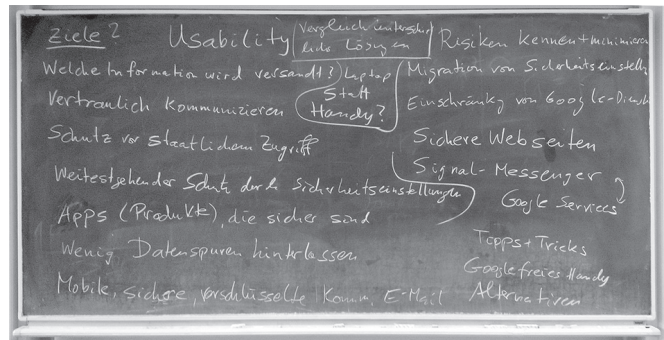 Ziele?
Usability
Vergleich unterschied-
liche Lösungen
Risiken kennen + minimieren
Welche Information wird versandt?
Laptop
statt
Handy?
Migration von Sicherheitseinstell
Vertraulich kommunizieren
Einschränkg von Google-Dienst
Schutz vor staatlichem Zugriff
Sichere Webseiten
Signal-Messenger
Google Services
Weitestgehender Schutz durch Sicherheitseinstellungen
Apps (Produkte), die sicher sind
Wenig Datenspuren hinterlassen
Tipps + Tricks
Googlefreies Handy
Mobile, sichere, verschlüsselte Komm. E-Mail
Alternativen